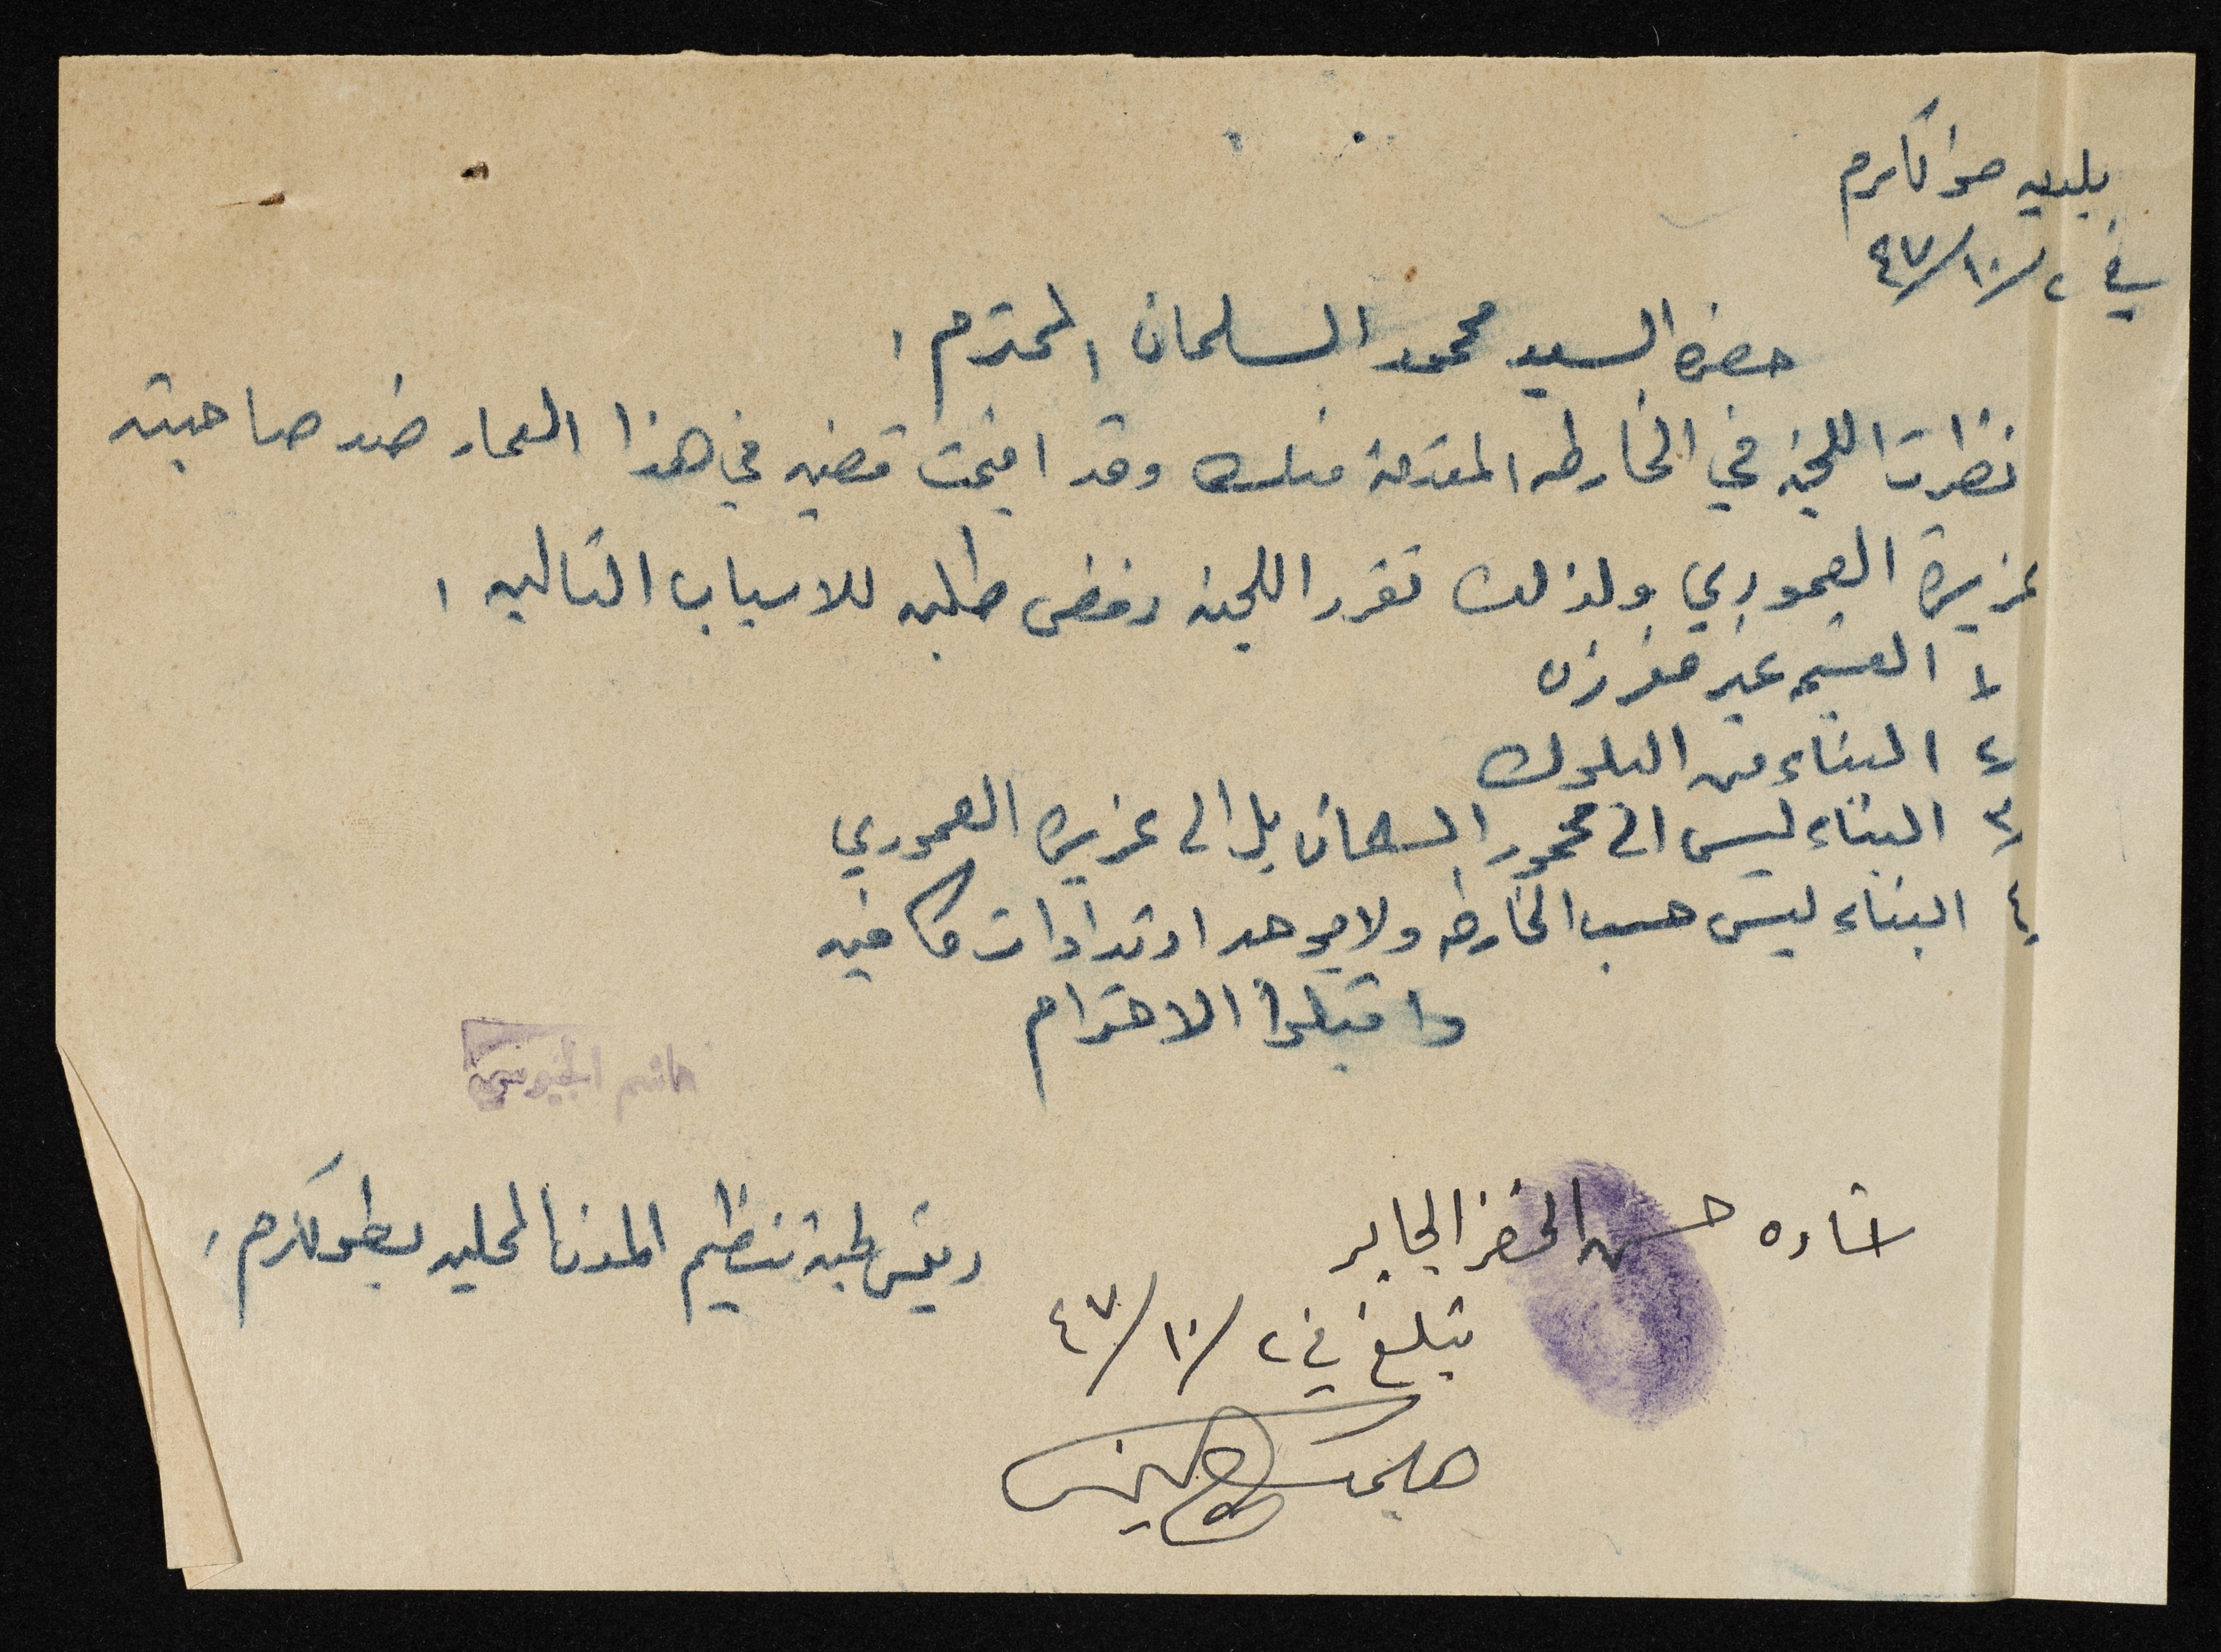 بلديه طولكرم
في ٢/١٠/٤٧
حضرة السيد محمود السلمان المحترم ،
نظرت اللجنه في الخارطه المقدمة منك وقد اقيمت قضيه في هذا العمار ضد صاحبته
عزيزة العموري ولذلك تقرر اللجنه رفض طلبه للاسباب التاليه ،
١ القسيمه غير مفرزه
٢ البناء من البلوك
٣ البناء ليس الى محمود السلمان بل الى عزيزه العموري
٤ البناء ليس حسب الخارطه ولا يوجد ارتدادات كافيه
واقبلوا الاحترام
هاشم الجيوسي
رئيس لجنة تنظيم المدن المحليه بطولكرم ،
اشاره حسن الخضر الجابر
تبلغ في ٢/١٠/٤٧